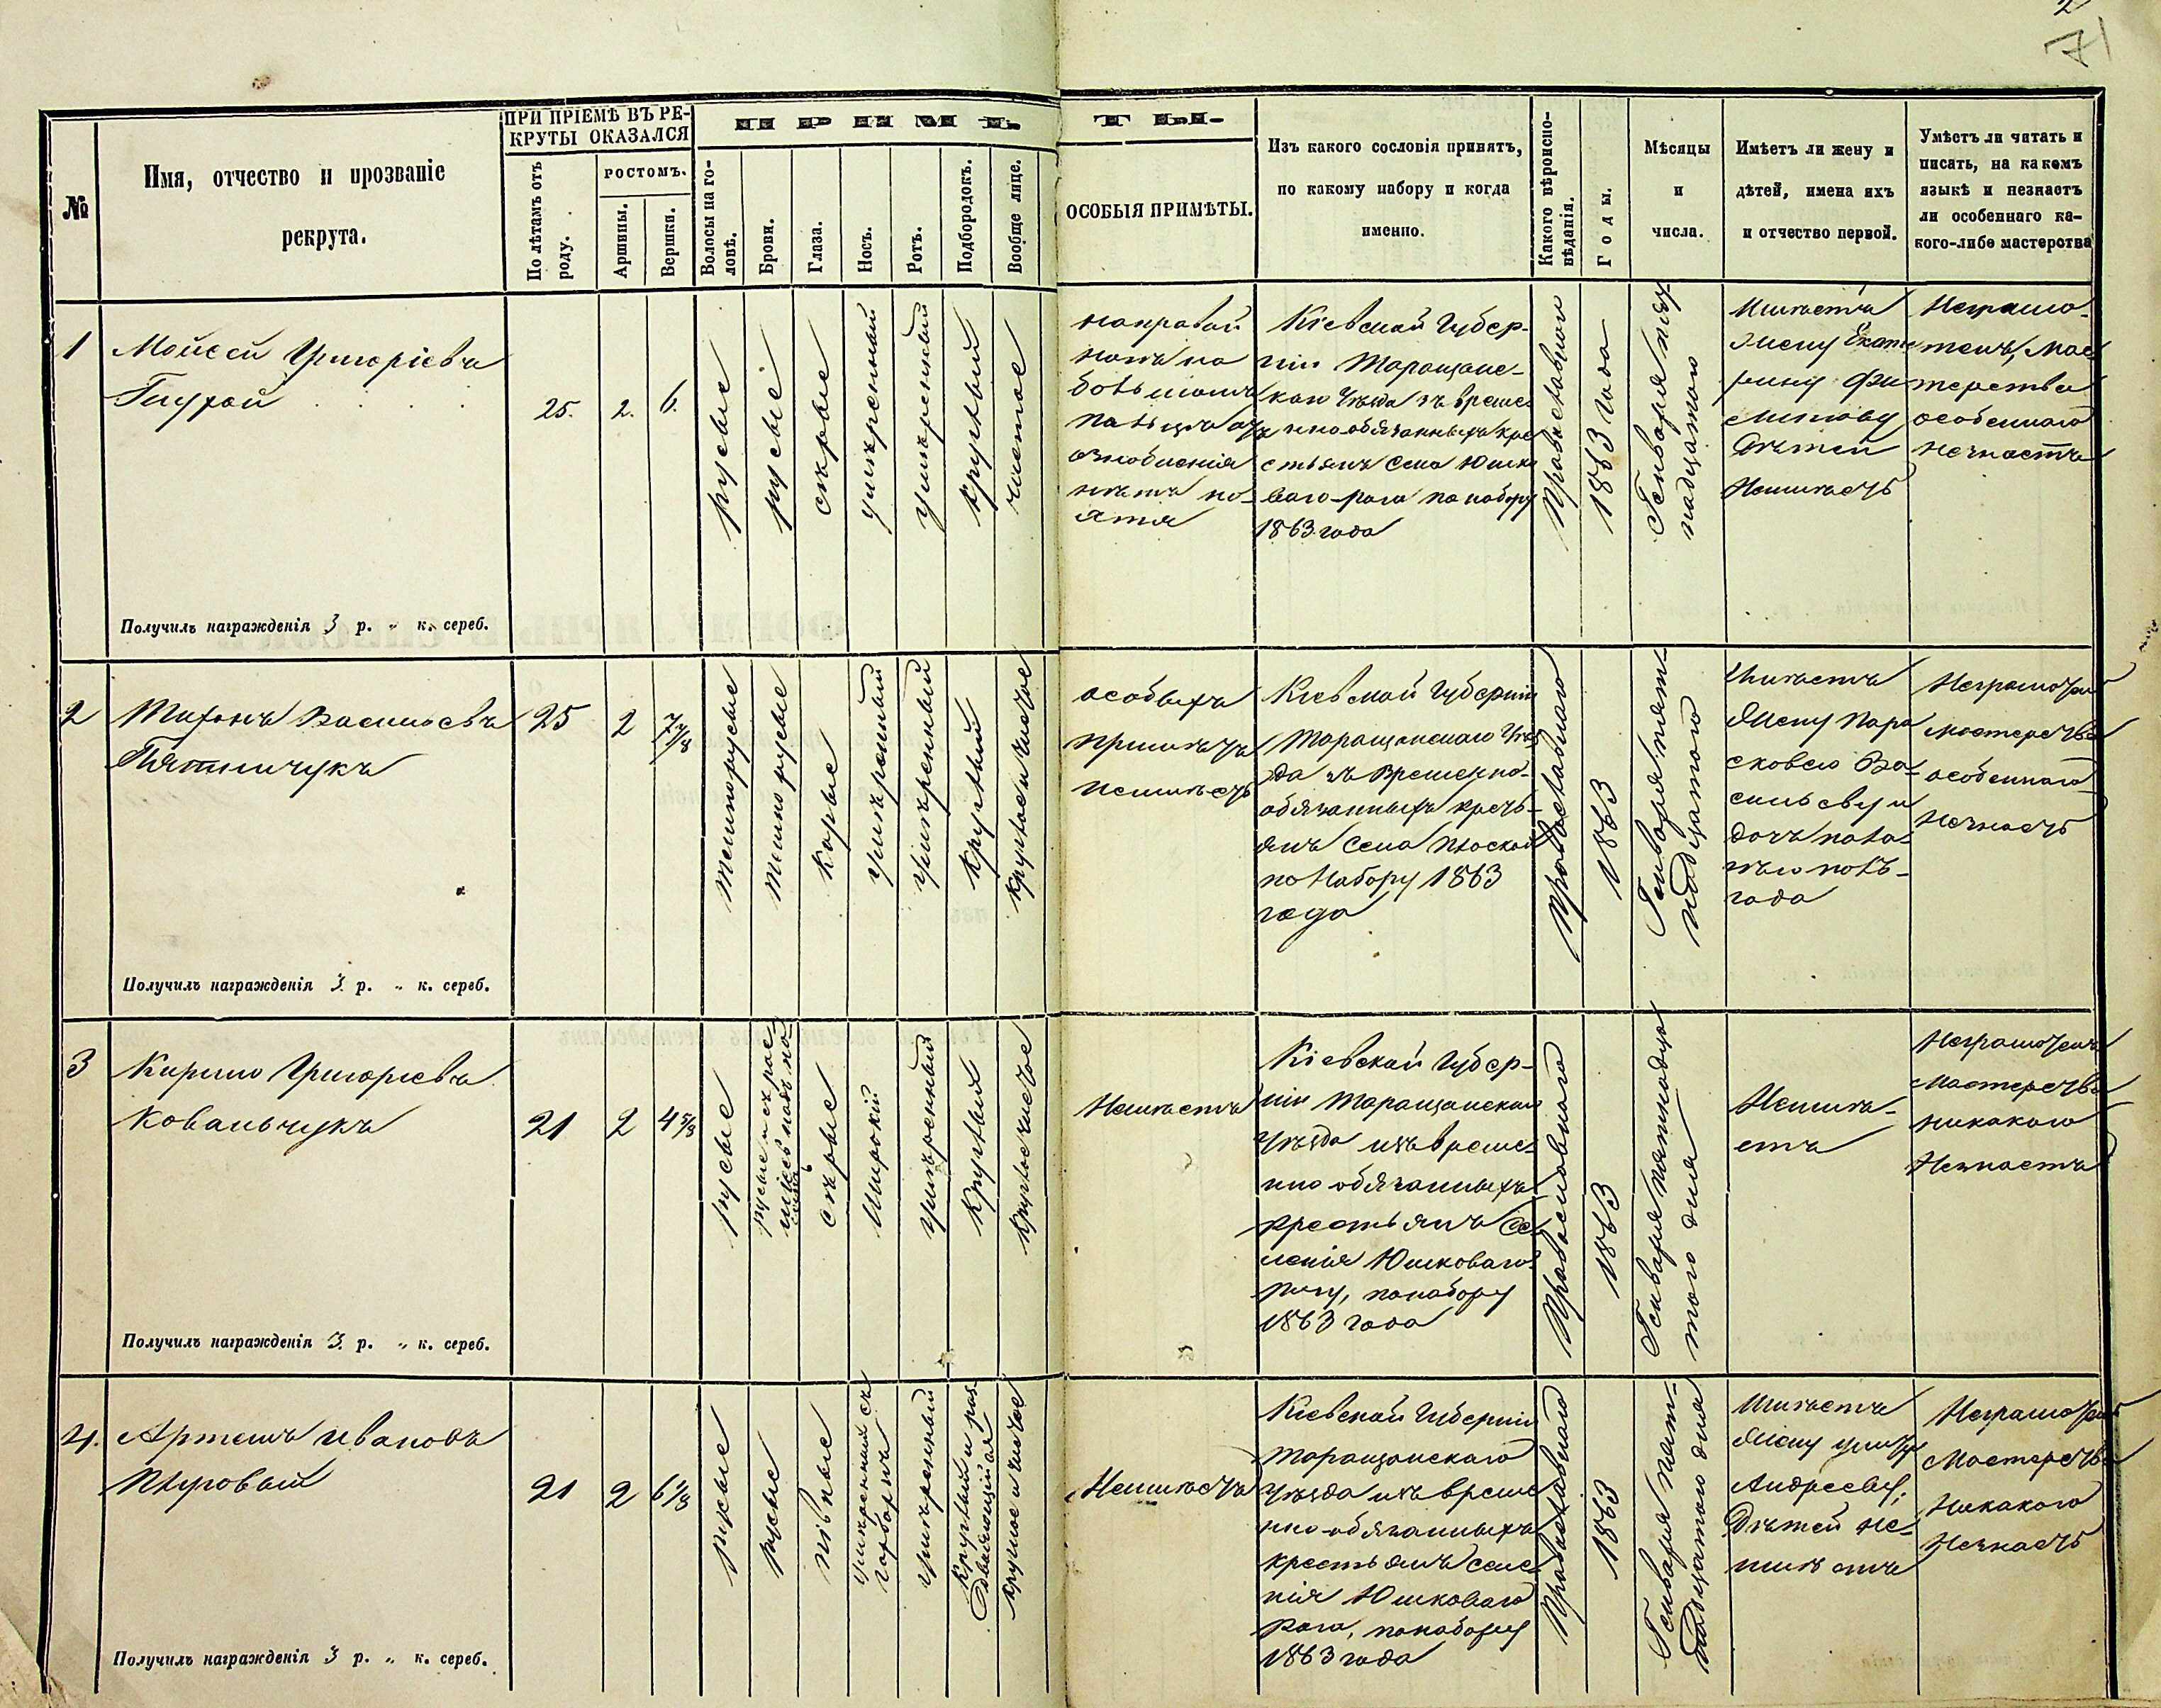 2
71
№
Имя, отчество и прозваніе
рекрута.
ПРИ ПРІЕМѢ ВЪ РЕ-
КРУТЫ ОКАЗАЛСЯ
По лѣтамъ отъ
роду.
РОСТОМЪ.
Аршины.
Вершки.
ПРИМѢ
ТЫ.
Волосы на го-
ловѣ.
Брови.
Глаза.
Носъ.
Ротъ.
Подбородокъ.
Вообще лице.
ОСОБЫЯ ПРИМѢТЫ.
Изъ какого сословія принятъ,
по какому набору и когда
именно.
Какого вѣроиспо-
вѣданія.
Годы.
Мѣсяцы
и
числа.
Имѣетъ ли жену и
дѣтей, имена ихъ
и отчество первой.
Умѣетъ ли читать и
писать, на какомъ
языкѣ и незнаетъ
ли особеннаго ка-
кого-либо мастерства
1
Мойсей Григоріевъ
25.
2.
6.
русые
русые
сѣрые
умѣренный
умѣренный
круглый
чистое
направой
ногѣ на
большомъ
пальцѣ отъ
ознобленія
нѣтъ но-
гтя
Кіевской Губер-
ніи Таращанс-
каго Уѣзда зъ време-
нно обязанныхъ кре
стьянъ Села Юшко
ваго-рога по набору
1863 года
Православного
1863 года
Генваря пят
надцатого
Имѣетъ
Жену Екате
рину Фи
липову
Дѣтей
Неимѣетъ
Неграмо-
тенъ, Мас
терства
особеннаго
незнаетъ
Получилъ награжденія 3 р. „ к. сереб.
2
Тихонъ Василіевъ
Пятничукъ
25
2
7 4/8
темнорусые
темно русые
Карые
умѣренный
умѣренный
Круглый
Круглое и чистое
особыхъ
примѣтъ
неимѣетъ
Кіевской Губерніи
Таращанскаго Уѣз
да зъ Временно-
обязанныхъ кресть-
янъ Села Плоской
по Набору 1863
года
Православнаго
1863
Генваря пят-
надцатого
Имѣетъ
Жену Пара
сковею Ва-
сильеву и
дочь пола-
гѣю полъ-
года
Неграмотенъ
мастерства
особеннаго
незнаетъ
Получилъ награжденія 3. р. „ к. сереб.
3
Кирило Григоріевъ
Ковальчукъ
21
2
4 5/8
русые
сѣрые
Широкій
умѣренный
Круглый
Круглое чистое
Неимѣетъ
Кіевской Губер-
ніи Таращанскаго
Уѣзда изъ време-
нно обязанныхъ
крестьянъ Се
ленія Юшковаго-
рогу, понабору
1863 года
Православного
1863
Генваря пятнадца
того дня
Неимѣ-
етъ
Неграмотенъ
Мастерства
никакого
Незнаетъ
Получилъ награжденія 3. р. „ к. сереб.
4.
Артемъ Ивановъ
Плуговый
21
2
6 1/8
русые
русые
пивные
умѣренный съ
горбомъ
умѣренный
Круглый и раз-
двояющійся
Круглое и чистое
Неимѣетъ
Кіевской Губерніи
Таращанскаго
Уѣзда изъ време
нно-обязанныхъ
крестьянъ селе
нія Юшковаго
рога, понабору
1863 года
Православнаго
1863
Генваря пят-
надцатого дня
Имѣетъ
Жену
Андрееву;
Дѣтей не-
имѣетъ
Неграмотенъ
Мастерства
Никакого
Незнаетъ
Получилъ награжденія 3 р. „ к. сереб.